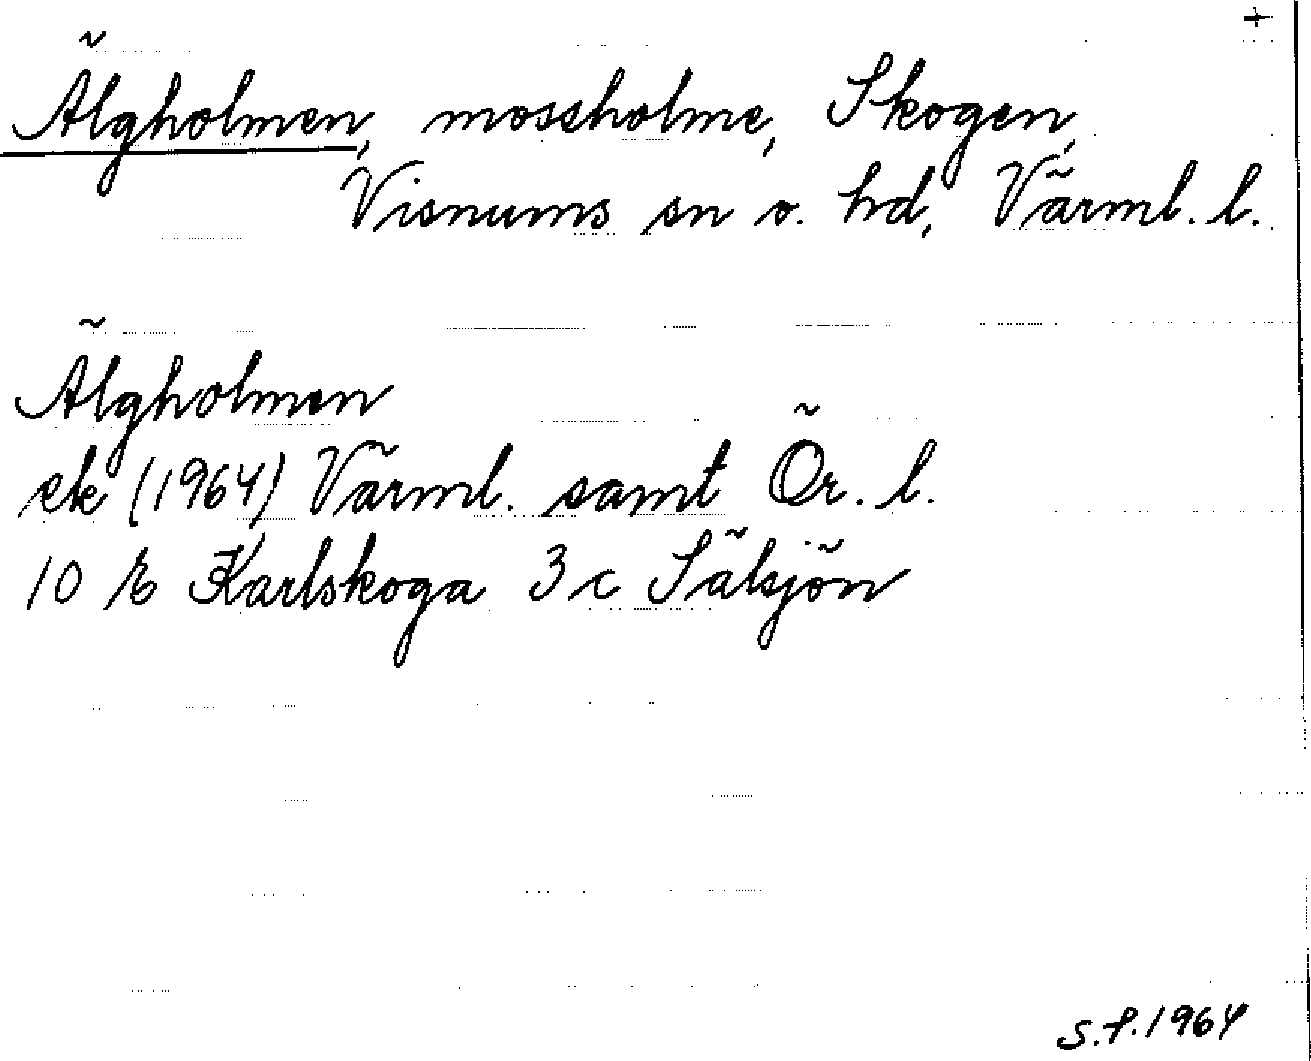 +
Älgholmen, mossholme, Skogen,
Visnums sn o. hd, Värml. l.
Älgholmen
ek (1964) Värml. samt Ör. l.
10 E Karlskoga 3 c Sälsjön
S.F. 1964